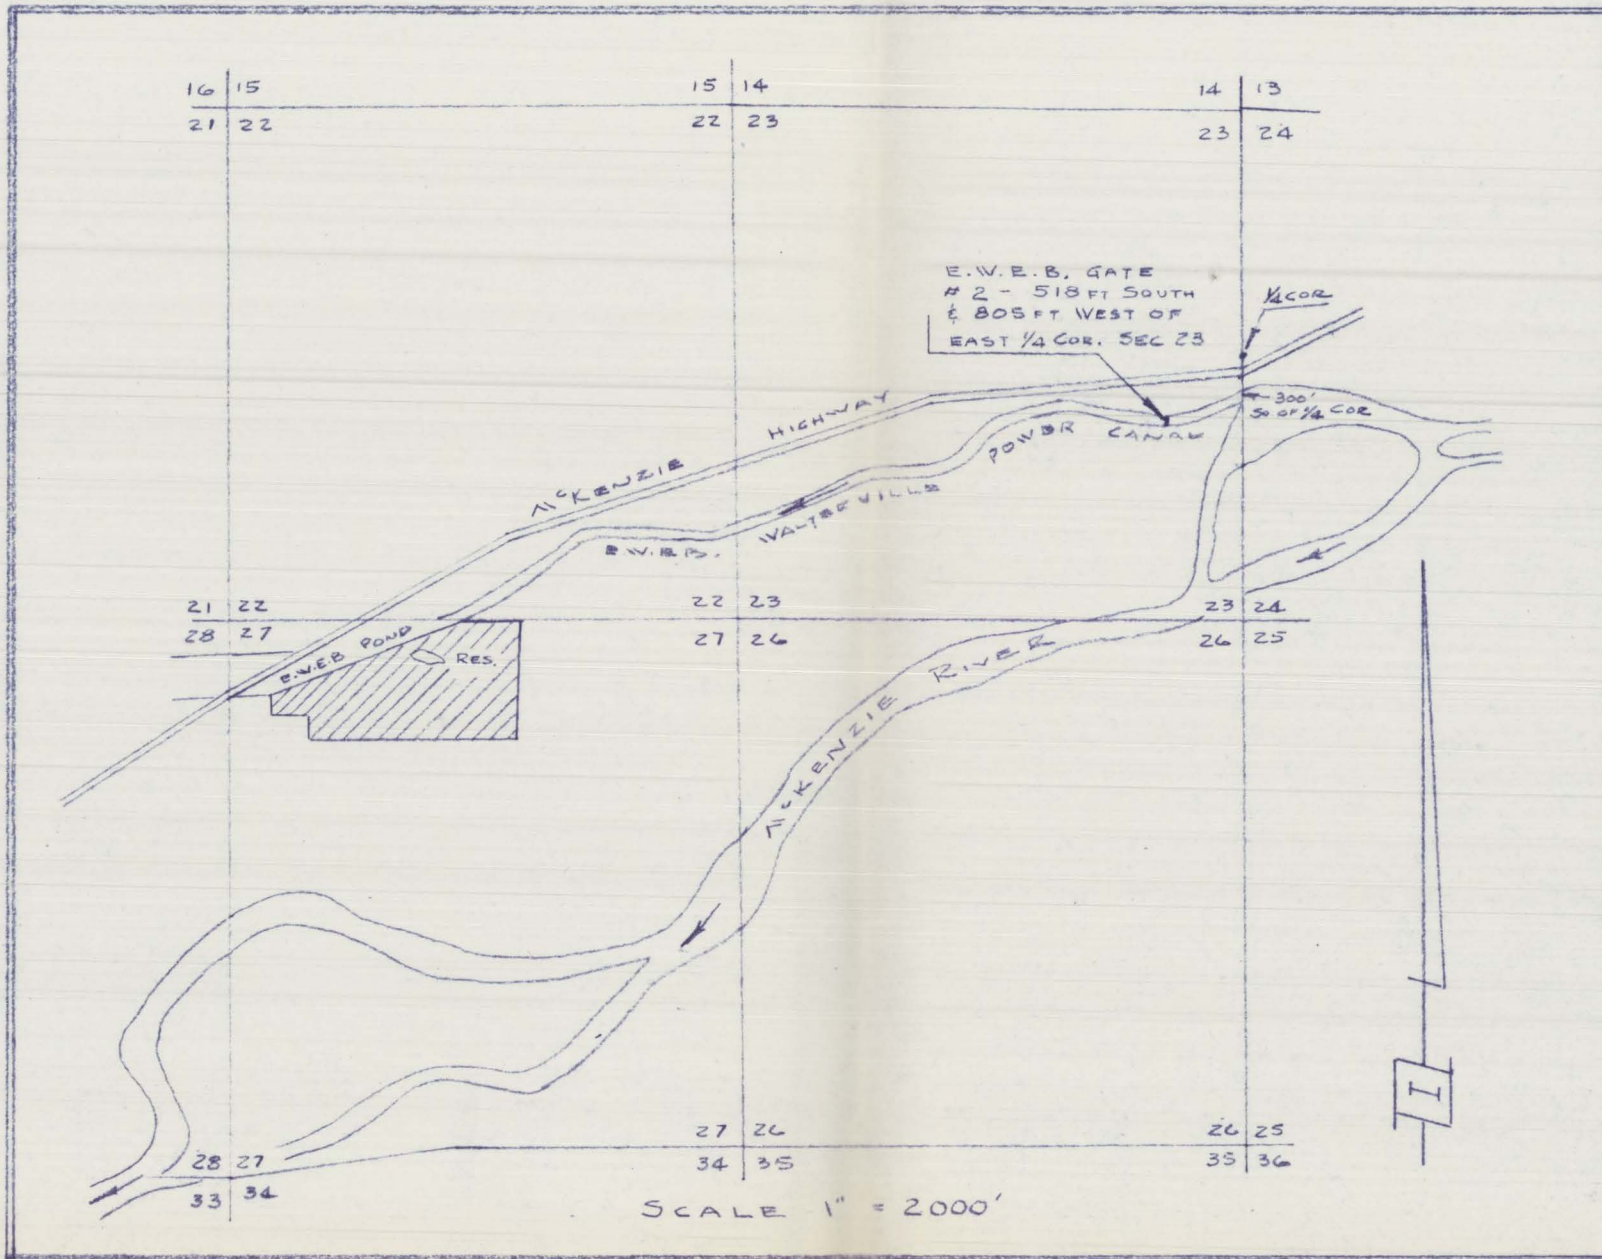 16 15
21 22
15 14
22 23
14 13
23 24
E.W.E.B. GATE
# 2 - 518 FT SOUTH
& 805 FT WEST OF
EAST 1/4 COR. SEC 23
1/4 COR
300'
SO OF 1/4 COR
McKENZIE HIGHWAY
E.W.E.B. WALTERVILLE POWER CANAL
21 22
28 27
22 23
27 26
23 24
26 25
E.W.E.B POND
RES.
McKENZIE RIVER
28 27
33 34
27 26
34 35
26 25
35 36
SCALE 1" = 2000'